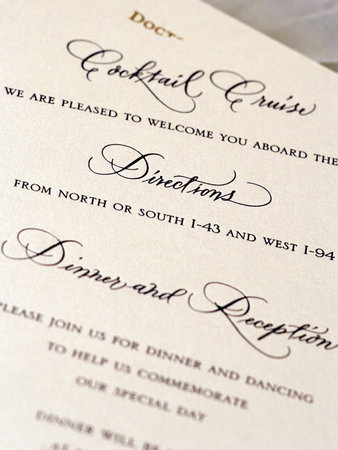 Cocktail Cruise
WE ARE PLEASED TO WELCOME YOU ABOARD THE
Directions
FROM NORTH OR SOUTH I-43 AND WEST I-94
Dinner and Reception
PLEASE JOIN US FOR DINNER AND DANCING
TO HELP US COMMEMORATE
OUR SPECIAL DAY
DINNER WILL BE